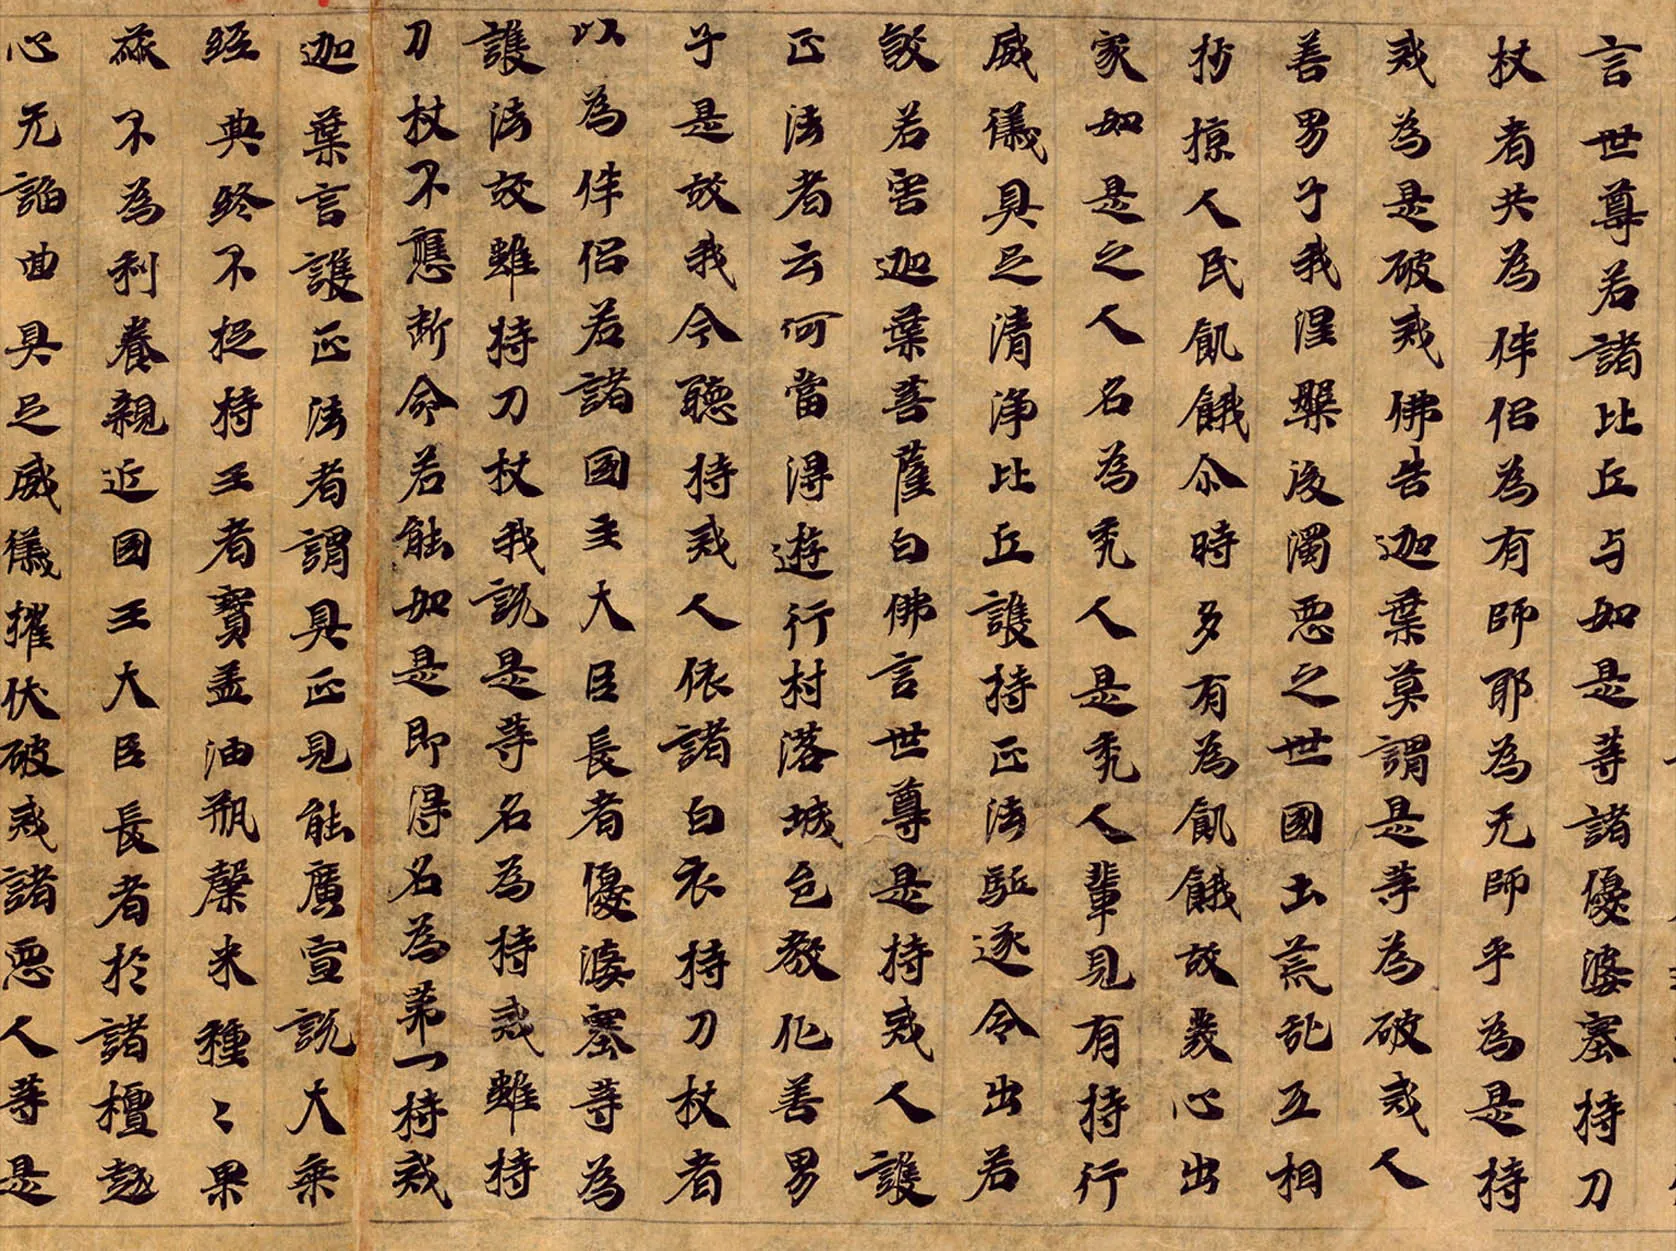 言世尊若諸比丘与如是等諸優婆塞持刀
杖者共為伴侶為有師耶為无師乎為是持
戒為是破戒佛告迦葉莫謂是等為破戒人
善男子我涅槃後濁惡之世國土荒乱互相
抄掠人民飢餓尒時多有為飢餓故發心出
家如是之人名為禿人是禿人輩見有持行
威儀具足清淨比丘護持正法駈逐令出若
煞若害迦葉菩薩白佛言世尊是持戒人護
正法者云何當得遊行村落城邑教化善男
子是故我今聽持戒人依諸白衣持刀杖者
以為伴侶若諸國主大臣長者優婆塞等為
護法故雖持刀杖我說是等名為持戒雖持
刀杖不應斷命若能如是即得名為第一持戒
迦葉言護正法者謂具正見能廣宣說大乘
經典終不捉持王者寶盖油瓶糜米種〻果
蓏不為利養親近國王大臣長者於諸檀越
心无諂曲具足威儀摧伏破戒諸惡人等是